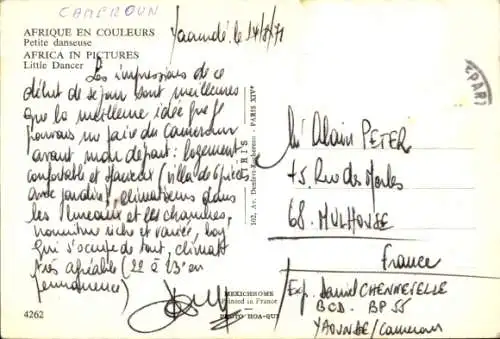 CAMEROUN
AFRIQUE EN COULEURS
Petite danseuse
AFRICA IN PICTURES
Little Dancer
Yaoundé le 14/8/71
Les impressions de ce
début de séjour sont meilleures
que la meilleure idée que je
pouvais me faire du Cameroun
avant mon départ : logement
confortable et spacieux (villa de 6 pièces
avec jardin), climatiseurs dans
les bureaux et les chambres,
nourriture riche et variée, boy
qui s'occupe de tout, climat
très agréable (22 à 23° en
permanence)
4262
MEXICHROME
Printed in France
PHOTO HOA-QUI
PARIS
162, Av. - PARIS XIVe
DEPART
Mr Alain PETER
75, Rue des
68. MULHOUSE
France
Exp. Daniel CHENNEVELLE
BCD. BP 55
YAOUNDE/Cameroun